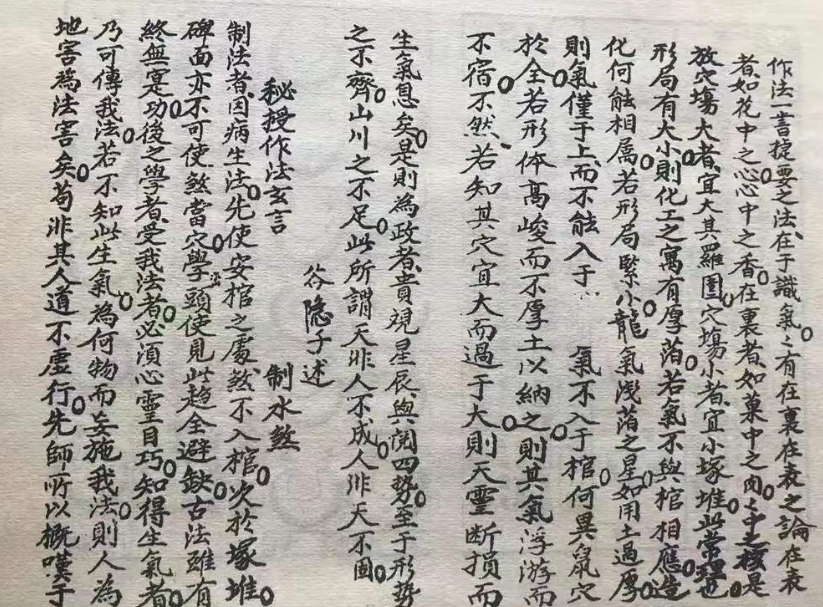 作法一書捉要之法、在于識氣。氣之有在裏在表之論、在表
者如花中之心、心中之香。在裏者如菓中之肉、肉中之核。是
放穴塲大者、宜大其羅圍。穴塲小者、宜小塚堆。此常理也。
形局有大小、則化工之寓有厚薄。若氣不與棺相應、造
化何能相属。若形局緊小、龍氣浅薄之星、如用土過厚、
則氣僅于上、而不能入于 氣不入于棺、何異鼠穴
於全。若形体高峻而不厚土以納之、則其氣浮游而
不宿。不然、若知其穴宜大而過于大、則天靈断損而
生氣息矣。是則為政者、貴規星辰與闊四勢。至于形勢
之不齊、山川之不足、此所謂天非人不成、人非天不囙。
谷隐子述
秘授作法玄言 制水煞
制法者因病生法。先使安棺之處、煞不入棺。次於塚堆
碑面、亦不可使煞當穴。學頭使見此趋全避缺。古法雖有
終無寔功。後之學者、受我法者、必須心靈目巧。知得生氣者、
乃可傳我法。若不知此生氣為何物而妄施我法、則人為
地害為法害矣。苟非其人、道不虛行。先師所以概嘆于